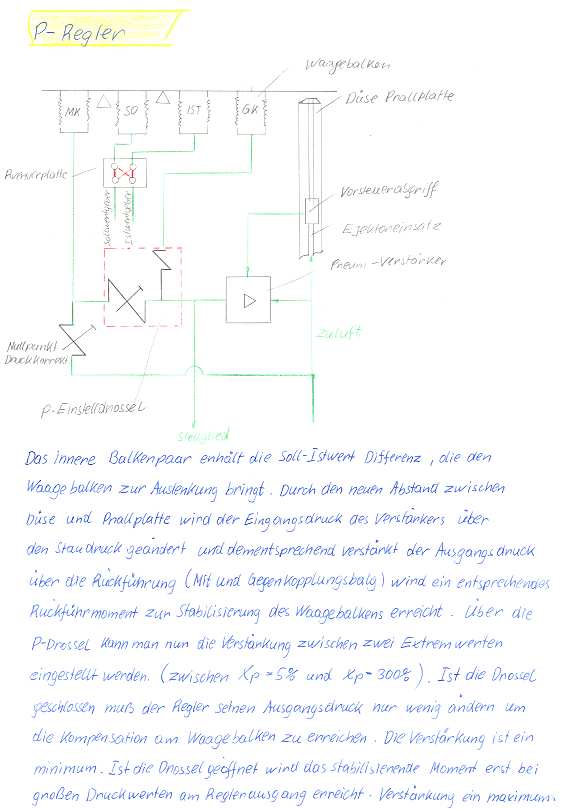 P-Regler
Waagebalken
Düse Prallplatte
MK
SO
IST
GK
Vorsteuerabgriff
Sollwertgeber
Istwertgeber
Ejektoreinsatz
Pneum-Verstärker
Zuluft
Nullpunkt
Druckkorrekt
P-Einstelldrossel
Stellglied
Das innere Balkenpaar enhält die Soll-Istwert Differenz, die den
Waagebalken zur Auslenkung bringt. Durch den neuen Abstand zwischen
Düse und Prallplatte wird der Eingangsdruck des Verstärkers über
den Staudruck geändert und dementsprechend verstärkt der Ausgangsdruck
über die Rückführung (Mit und Gegenkopplungsbalg) wird ein entsprechendes
Rückführmoment zur Stabilisierung des Waagebalkens erreicht. Über die
P-Drossel kann man nun die Verstärkung zwischen zwei Extremwerten
eingestellt werden. (zwischen Xp=5% und Xp=300%). Ist die Drossel
geschlossen muß der Regler seinen Ausgangsdruck nur wenig ändern um
die Kompensation am Waagebalken zu erreichen. Die Verstärkung ist ein
minimum. Ist die Drossel geöffnet wird das stabilisierende Moment erst bei
großen Druckwerten am Reglerausgang erreicht. Verstärkung ein maximum.